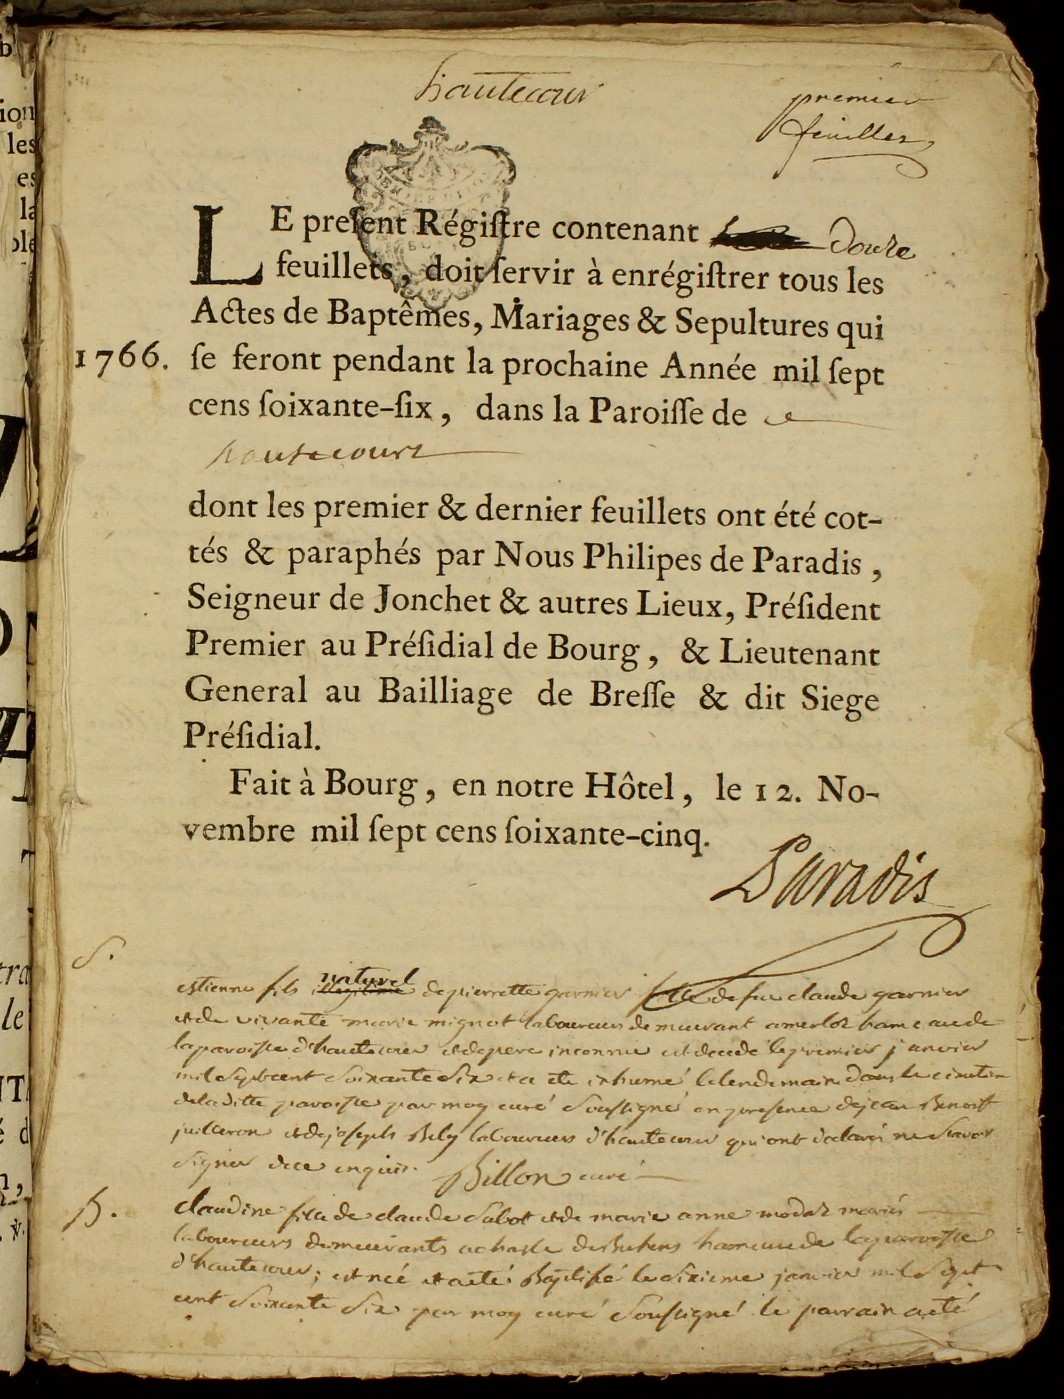 hautecour
premier
feuillet
LE preſent Régiſtre contenant douze
feuillets, doit ſervir à enrégiſtrer tous les
Actes de Baptêmes, Mariages & Sepultures qui
1766. ſe feront pendant la prochaine Année mil ſept
cens ſoixante-ſix, dans la Paroiſſe de
hautecourt
dont les premier & dernier feuillets ont été cot-
tés & paraphés par Nous Philipes de Paradis,
Seigneur de Jonchet & autres Lieux, Préſident
Premier au Préſidial de Bourg, & Lieutenant
General au Bailliage de Breſſe & dit Siege
Préſidial.
Fait à Bourg, en notre Hôtel, le 12. No-
vembre mil ſept cens ſoixante-cinq.
Paradis
S.
naturel
estienne fils de pierrette garnier fille de feu claude garnier
et de vivante marie mignot laboureurs demeurant a merloz hameau de
la paroisse d'hautecour et de pere inconnu est decedé le premier janvier
mil sept cent soixante six et a ete inhumé le lendemain dans le cimetiere
de la ditte paroisse par moy curé soussigné en presence de jean Benoit
juilleron et de joseph Bely laboureurs d'hautecour qui ont declaré ne scavoir
signer de ce enquis. Billon curé
B.
claudine fille de claude Sabot et de marie anne modaz mariés
laboureurs demeurants a chasle hameau de la paroisse
d'hautecour; est née et a eté Baptisé le sixieme janvier mil sept
cent soixante six par moy curé soussigné le parrain a eté